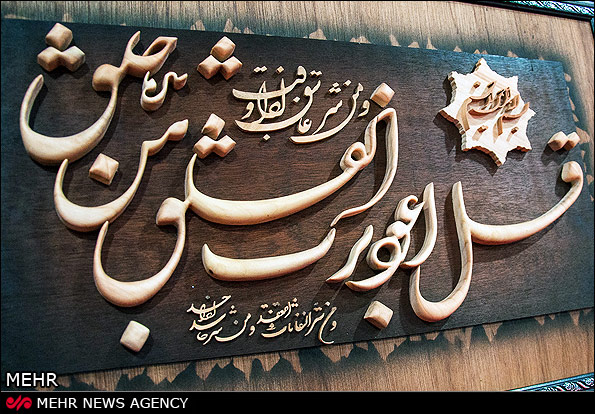 بسم الله الرحمن الرحیم
قل اعوذ برب الفلق من شر ما خلق
و من شر غاسق اذا وقب
و من شر النفاثات فی العقد و من شر حاسد اذا حسد
MEHR
MEHR NEWS AGENCY